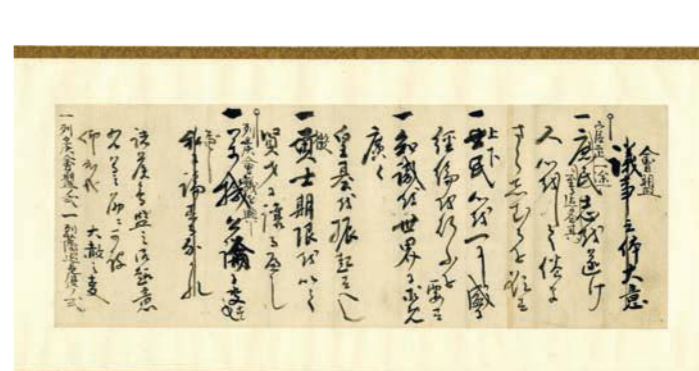 會盟
議事之体大意
官武一途
至る迄各其
一庶民志を遂け
人心をして倦ま
さらしむるを欲す
上下
一士民心を一ニし盛ニ
経綸を行ふを要す
一知識を世界ニ求め
廣く
皇基を振起すへし
徴
一貢士期限を以て
賢才ニ譲るへし
列侯會議を興し
一万機公論に決し
私ニ論するなかれ
諸侯會盟之御趣意
右等之筋ニ可被
仰出哉 大赦之事
一列侯會盟ノ式 一列藩巡見使ノ式